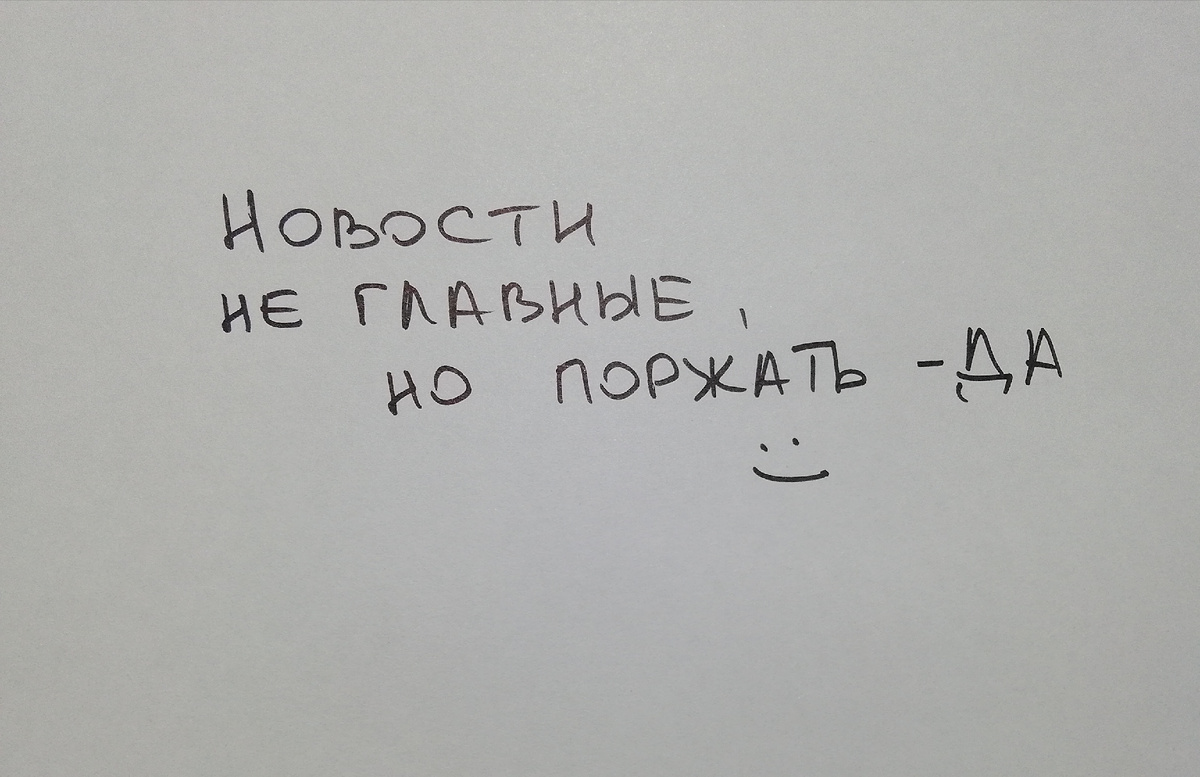 Новости
не главные,
но поржать - да